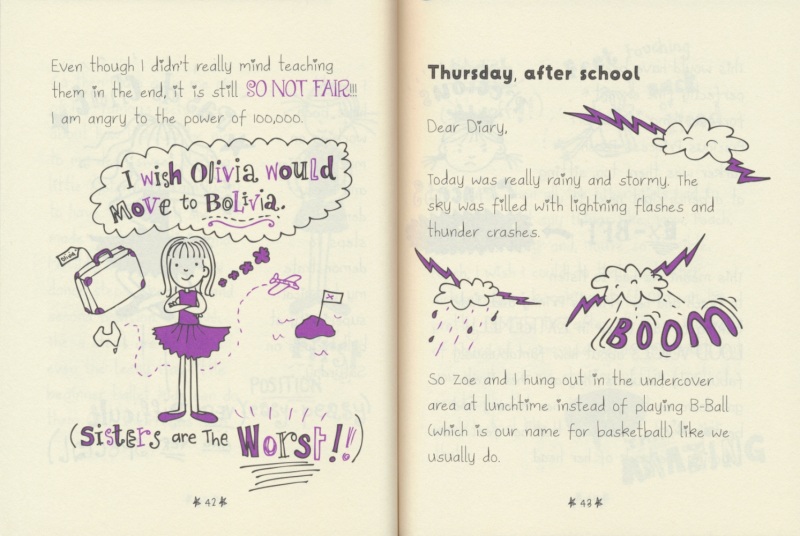 Even though I didn't really mind teaching
them in the end, it is still SO NOT FAIR!!!
I am angry to the power of 100,000.
I wish Olivia would
move to Bolivia.
(Sisters are The Worst!!)
42
Thursday, after school
Dear Diary,
Today was really rainy and stormy. The
sky was filled with lightning flashes and
thunder crashes.
BOOM
So Zoe and I hung out in the undercover
area at lunchtime instead of playing B-Ball
(which is our name for basketball) like we
usually do.
43